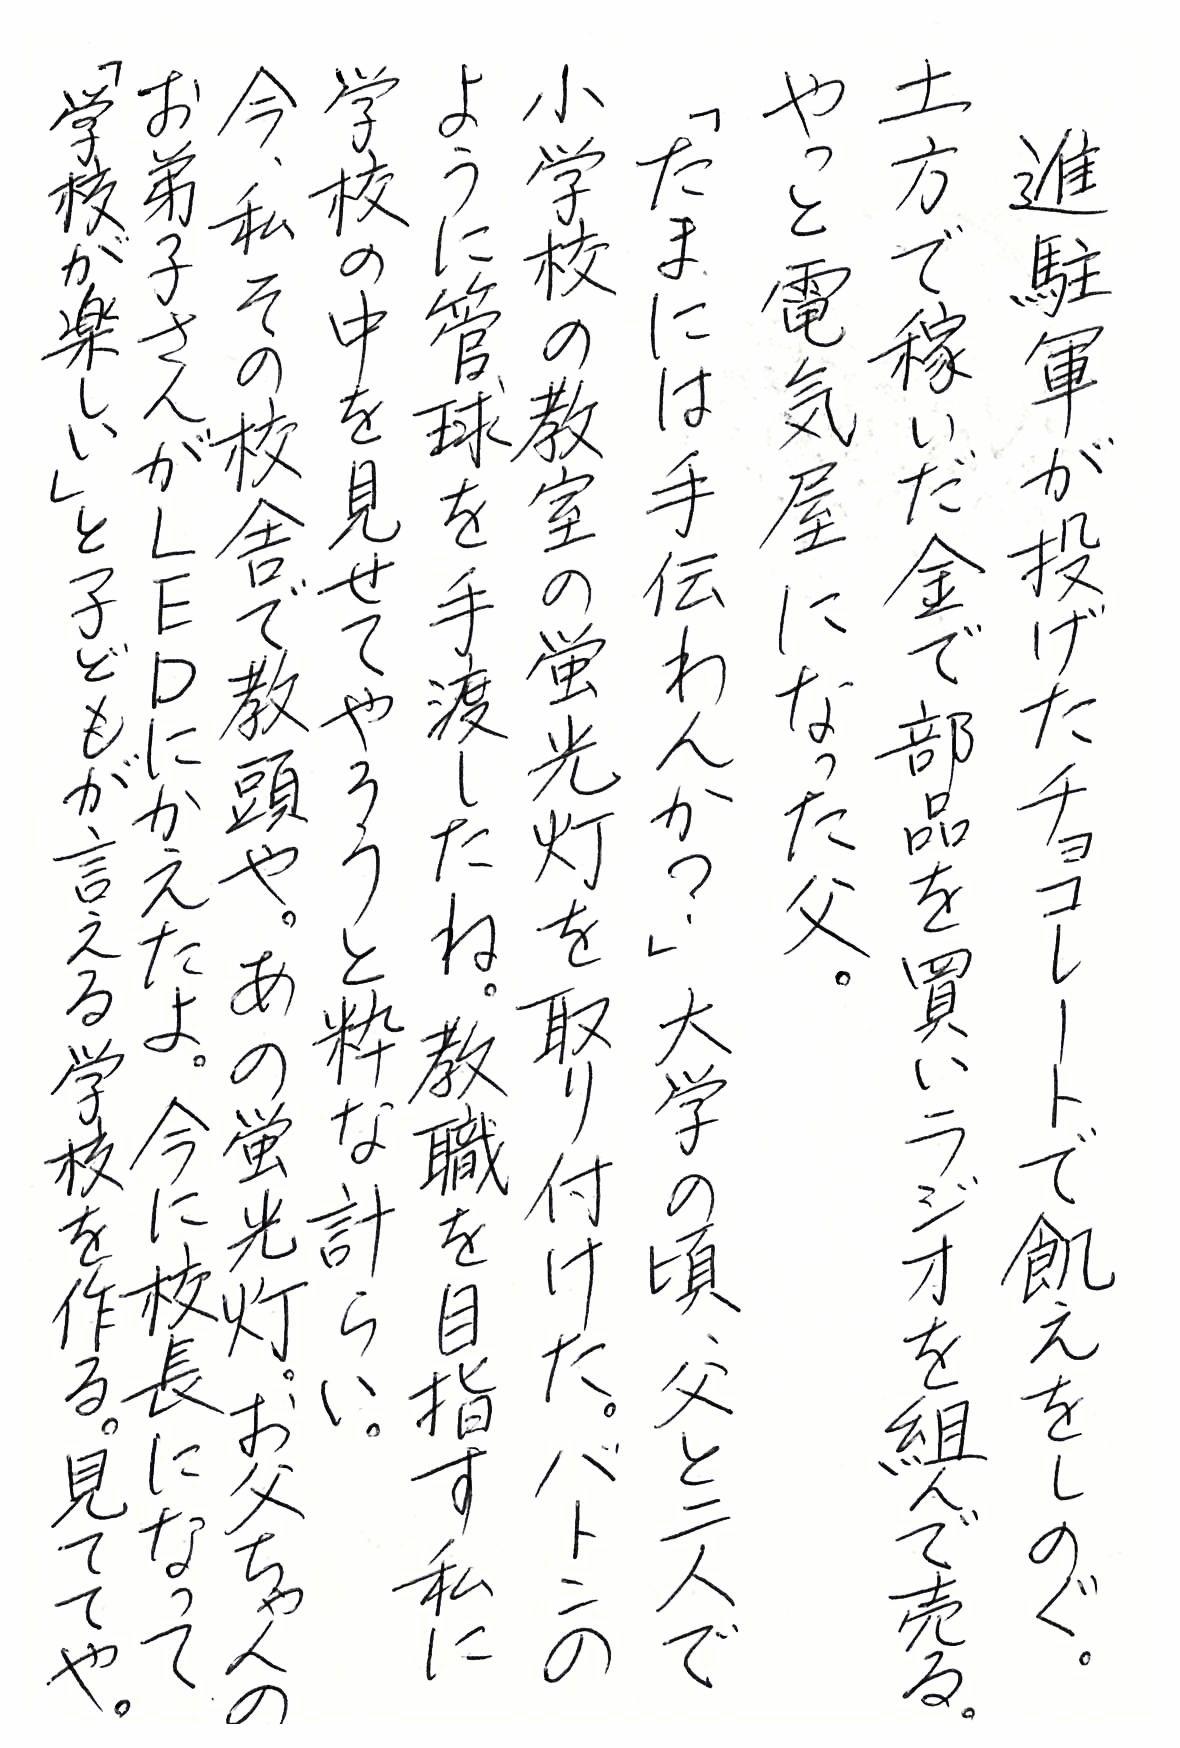 進駐軍が投げたチョコレートで飢えをしのぐ。
土方で稼いだ金で部品を買いラジオを組んで売る。
やっと電気屋になった父。
「たまには手伝わんか？」大学の頃、父と二人で
小学校の教室の蛍光灯を取り付けた。バトンの
ように管球を手渡したね。教職を目指す私に
学校の中を見せてやろうと粋な計らい。
今、私その校舎で教頭や。あの蛍光灯。お父ちゃんの
お弟子さんがLEDにかえたよ。今に校長になって
「学校が楽しい」と子どもが言える学校を作る。見ててや。